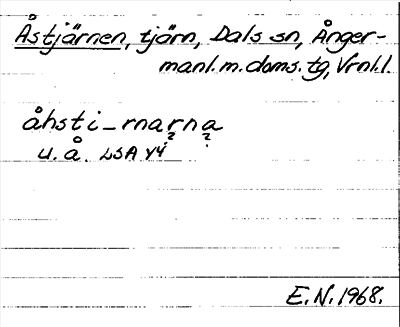 Åstjärnen, tjärn, Dals sn, Ånger-
manl. m. doms. tg, Vrnl. l.
åhsti_rnarna
u. å. LSA Y4
E. N. 1968.